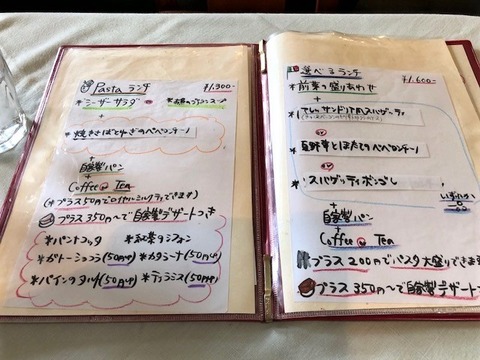 Pasta ランチ ¥1,300-
*シーザーサラダ or *お店のプランス
+
*焼きさばとねぎのペペロンチーノ
+
自家製パン
+
Coffee or Tea
(*プラス50円でロイヤルミルクティできます)
プラス350円〜で自家製デザートつき
*パンナコッタ *紅茶のシフォン
*ガトーショコラ(50円中) *カタラーナ(50円中)
*パインのタルト(50円中) *ティラミス(50円中)
選べるランチ ¥1,600-
*前菜の盛りあわせ
+
*スパゲッティ
or
*夏野菜とほたてのペペロンチーノ
or
*スパゲッティボンゴレ
いずれか
+
自家製パン
+
Coffee or Tea
プラス200円でパスタ大盛りできます
プラス350円〜で自家製デザートつき